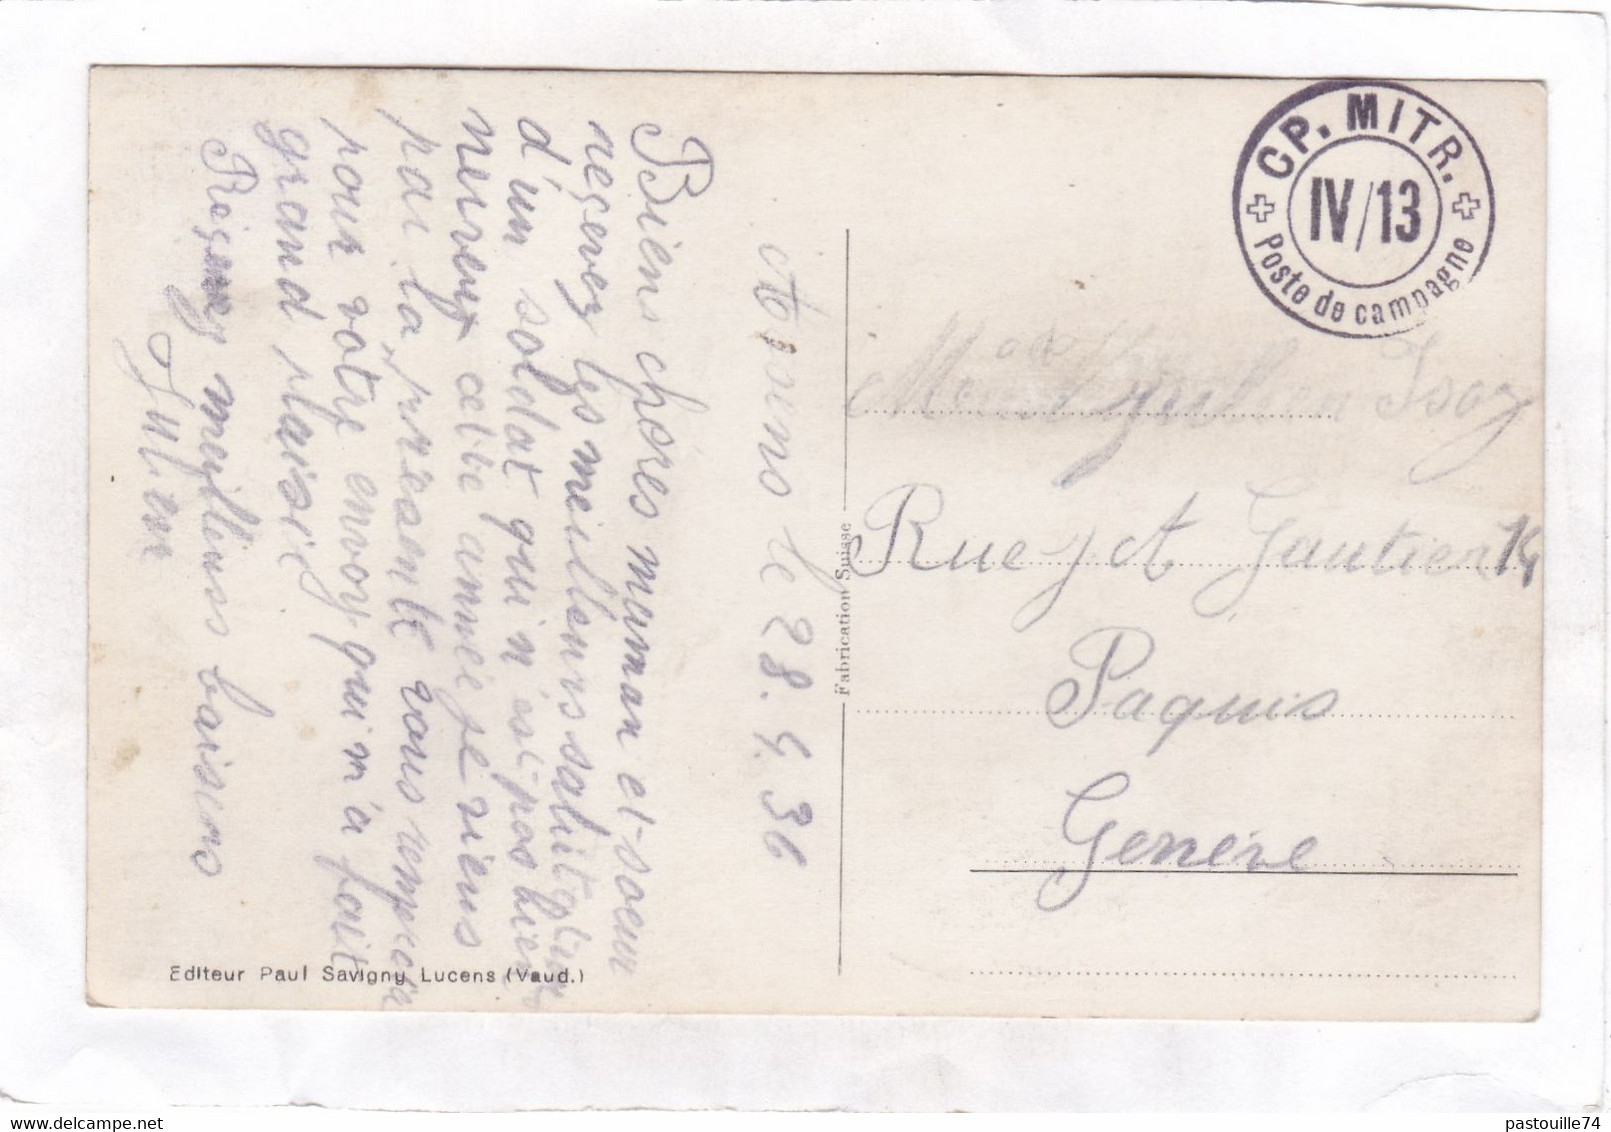 CP. MITR.
IV/13
Poste de campagne
le 28.4.36
Biens chères maman et soeur
reçevez les meilleurs salut
d'un soldat qui n'est pas bien
nerveux cette année je viens
par la présente vous remercier
pour votre envoy qui m'a fait
grand plaisir
Reçevez meilleurs baisers
Julien
Julien Isoz
Rue J A Gautier 14
Paquis
Genève
Fabrication Suisse
Editeur Paul Savigny Lucens (Vaud.)
pastouille74